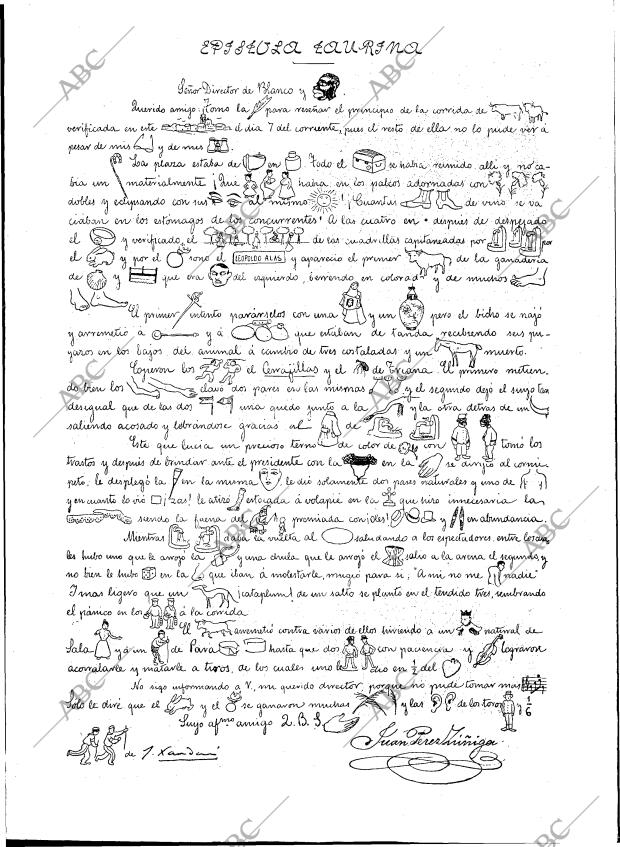 EPISTOLA TAURINA
Señor Director de Blanco y
Querido amigo: Tomo la para reseñar el principio de la corrida de
verificada en este el dia 7 del corriente, pues el resto de ella no lo pude ver á
pesar de mis y de mis
La plaza estaba de en Todo el se habia reunido allí y no ca-
bía un materialmente ¡Qué habia en los palcos adornadas con
dobles y eclipsando con sus al mismo ! ¡Cuantas de vino se va
ciaban en los estómagos de los concurrentes! A las cuatro en • despues de despejado
el y verificado el de las cuadrillas capitaneadas por por
el y por el sonó el LEOPOLDO ALAS y apareció el primer de la ganadería
de y que era del izquierdo, berrendo en colorao y de muchos
El primer intento parárselos con una y un pero el bicho se najó
y arremetió á y á que estaban de tanda recibiendo seis pu-
yazos en los bajos del animal á cambio de tres costaladas y un muerto.
Cogieron los el Cerrajillas y el de Triana. El primero metien
do bien los clavó dos pares en las mismas y el segundo dejó el suyo tan
desigual que de las dos una quedó junto á la y la otra detras de un
saliendo acosado y librándose gracias al de
Este que lucía un precioso terno de color de con tomó los
trastos y despues de brindar ante el presidente con la en la se dirijió al corni-
peto, le desplegó la en la misma le dió solamente dos pases naturales y uno de
y en cuanto lo vió □ ¡zas! le atizó estocada á volapié en la que hizo innecesaria la
siendo la faena del premiada con ¡oles! y en abundancia.
Mientras daba la vuelta al saludando á los espectadores, entre los cua-
les hubo uno que le arrojó la y una chula que le arrojó el saltó á la arena el segundo, y
no bien le hubo en la que iban á molestarle, mugió para si; "A mi no me nadie"
I mas ligero que un ¡cataplum! de un salto se plantó en el tendido tres, sembrando
el pánico en los á la corrida.
El arremetió contra varios de ellos hiriendo á un natural de
Sala y á un de Para hasta que dos con paciencia y lograron
acorralarle y matarle a tiros, de los cuales uno le dió en ½ del
No sigo informando a V., mi querido director, porque no pude tomar más
Solo le diré que el y el se ganaron muchas y las de los toros y 1/6
Suyo afmo amigo Q. B. S.
Juan Perez Zúñiga
de J. Xaudaró